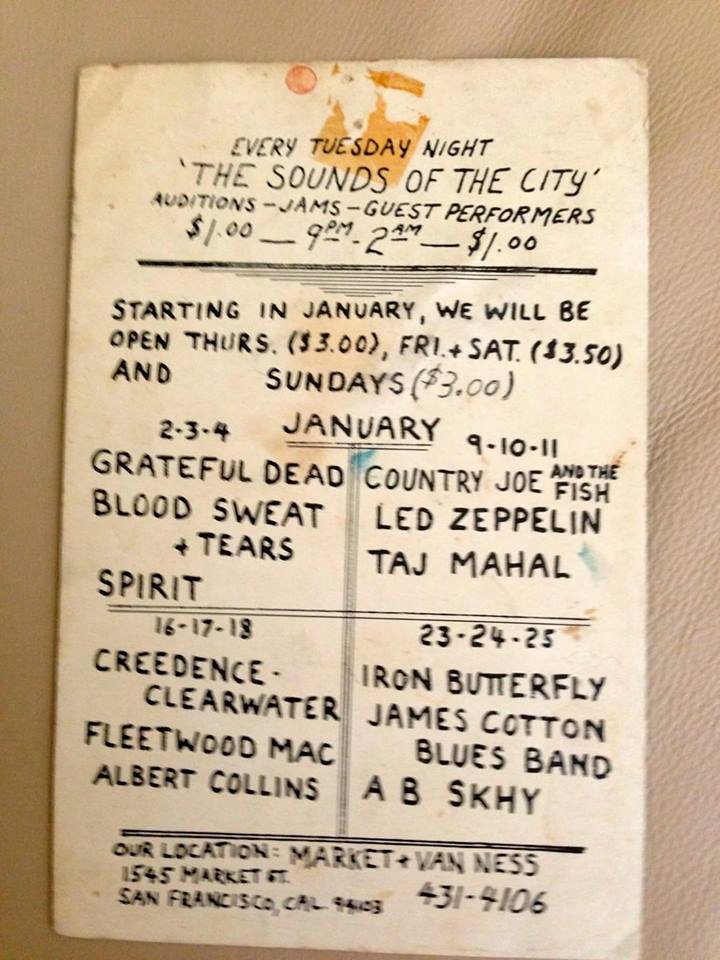 EVERY TUESDAY NIGHT
'THE SOUNDS OF THE CITY'
AUDITIONS - JAMS - GUEST PERFORMERS
$1.00 — 9PM - 2AM — $1.00
STARTING IN JANUARY, WE WILL BE
OPEN THURS. ($3.00), FRI. + SAT. ($3.50)
AND SUNDAYS ($3.00)
JANUARY
2-3-4
GRATEFUL DEAD
BLOOD SWEAT
+ TEARS
SPIRIT
9-10-11
COUNTRY JOE AND THE
FISH
LED ZEPPELIN
TAJ MAHAL
16-17-18
CREEDENCE-
CLEARWATER
FLEETWOOD MAC
ALBERT COLLINS
23-24-25
IRON BUTTERFLY
JAMES COTTON
BLUES BAND
A B SKHY
OUR LOCATION: MARKET + VAN NESS
1545 MARKET ST.
SAN FRANCISCO, CAL. 94103
431-4106